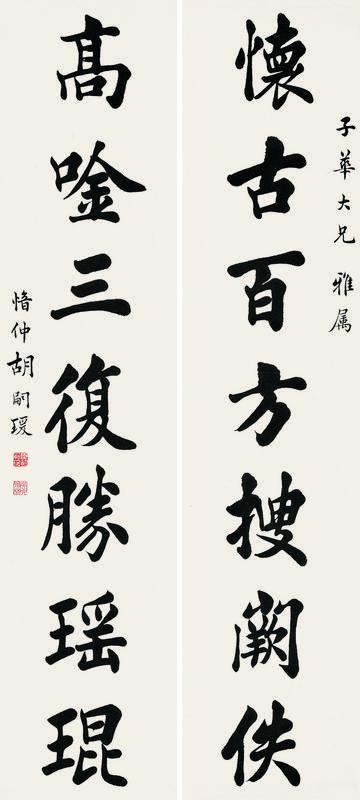 子華大兄雅属
懷古百方搜闕佚
高唫三復勝瑶琨
愔仲胡嗣瑗